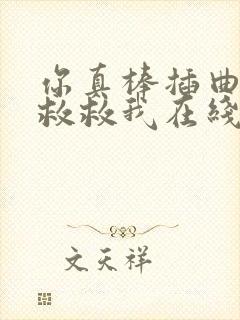 你真棒插曲
救救我在线
文天祥